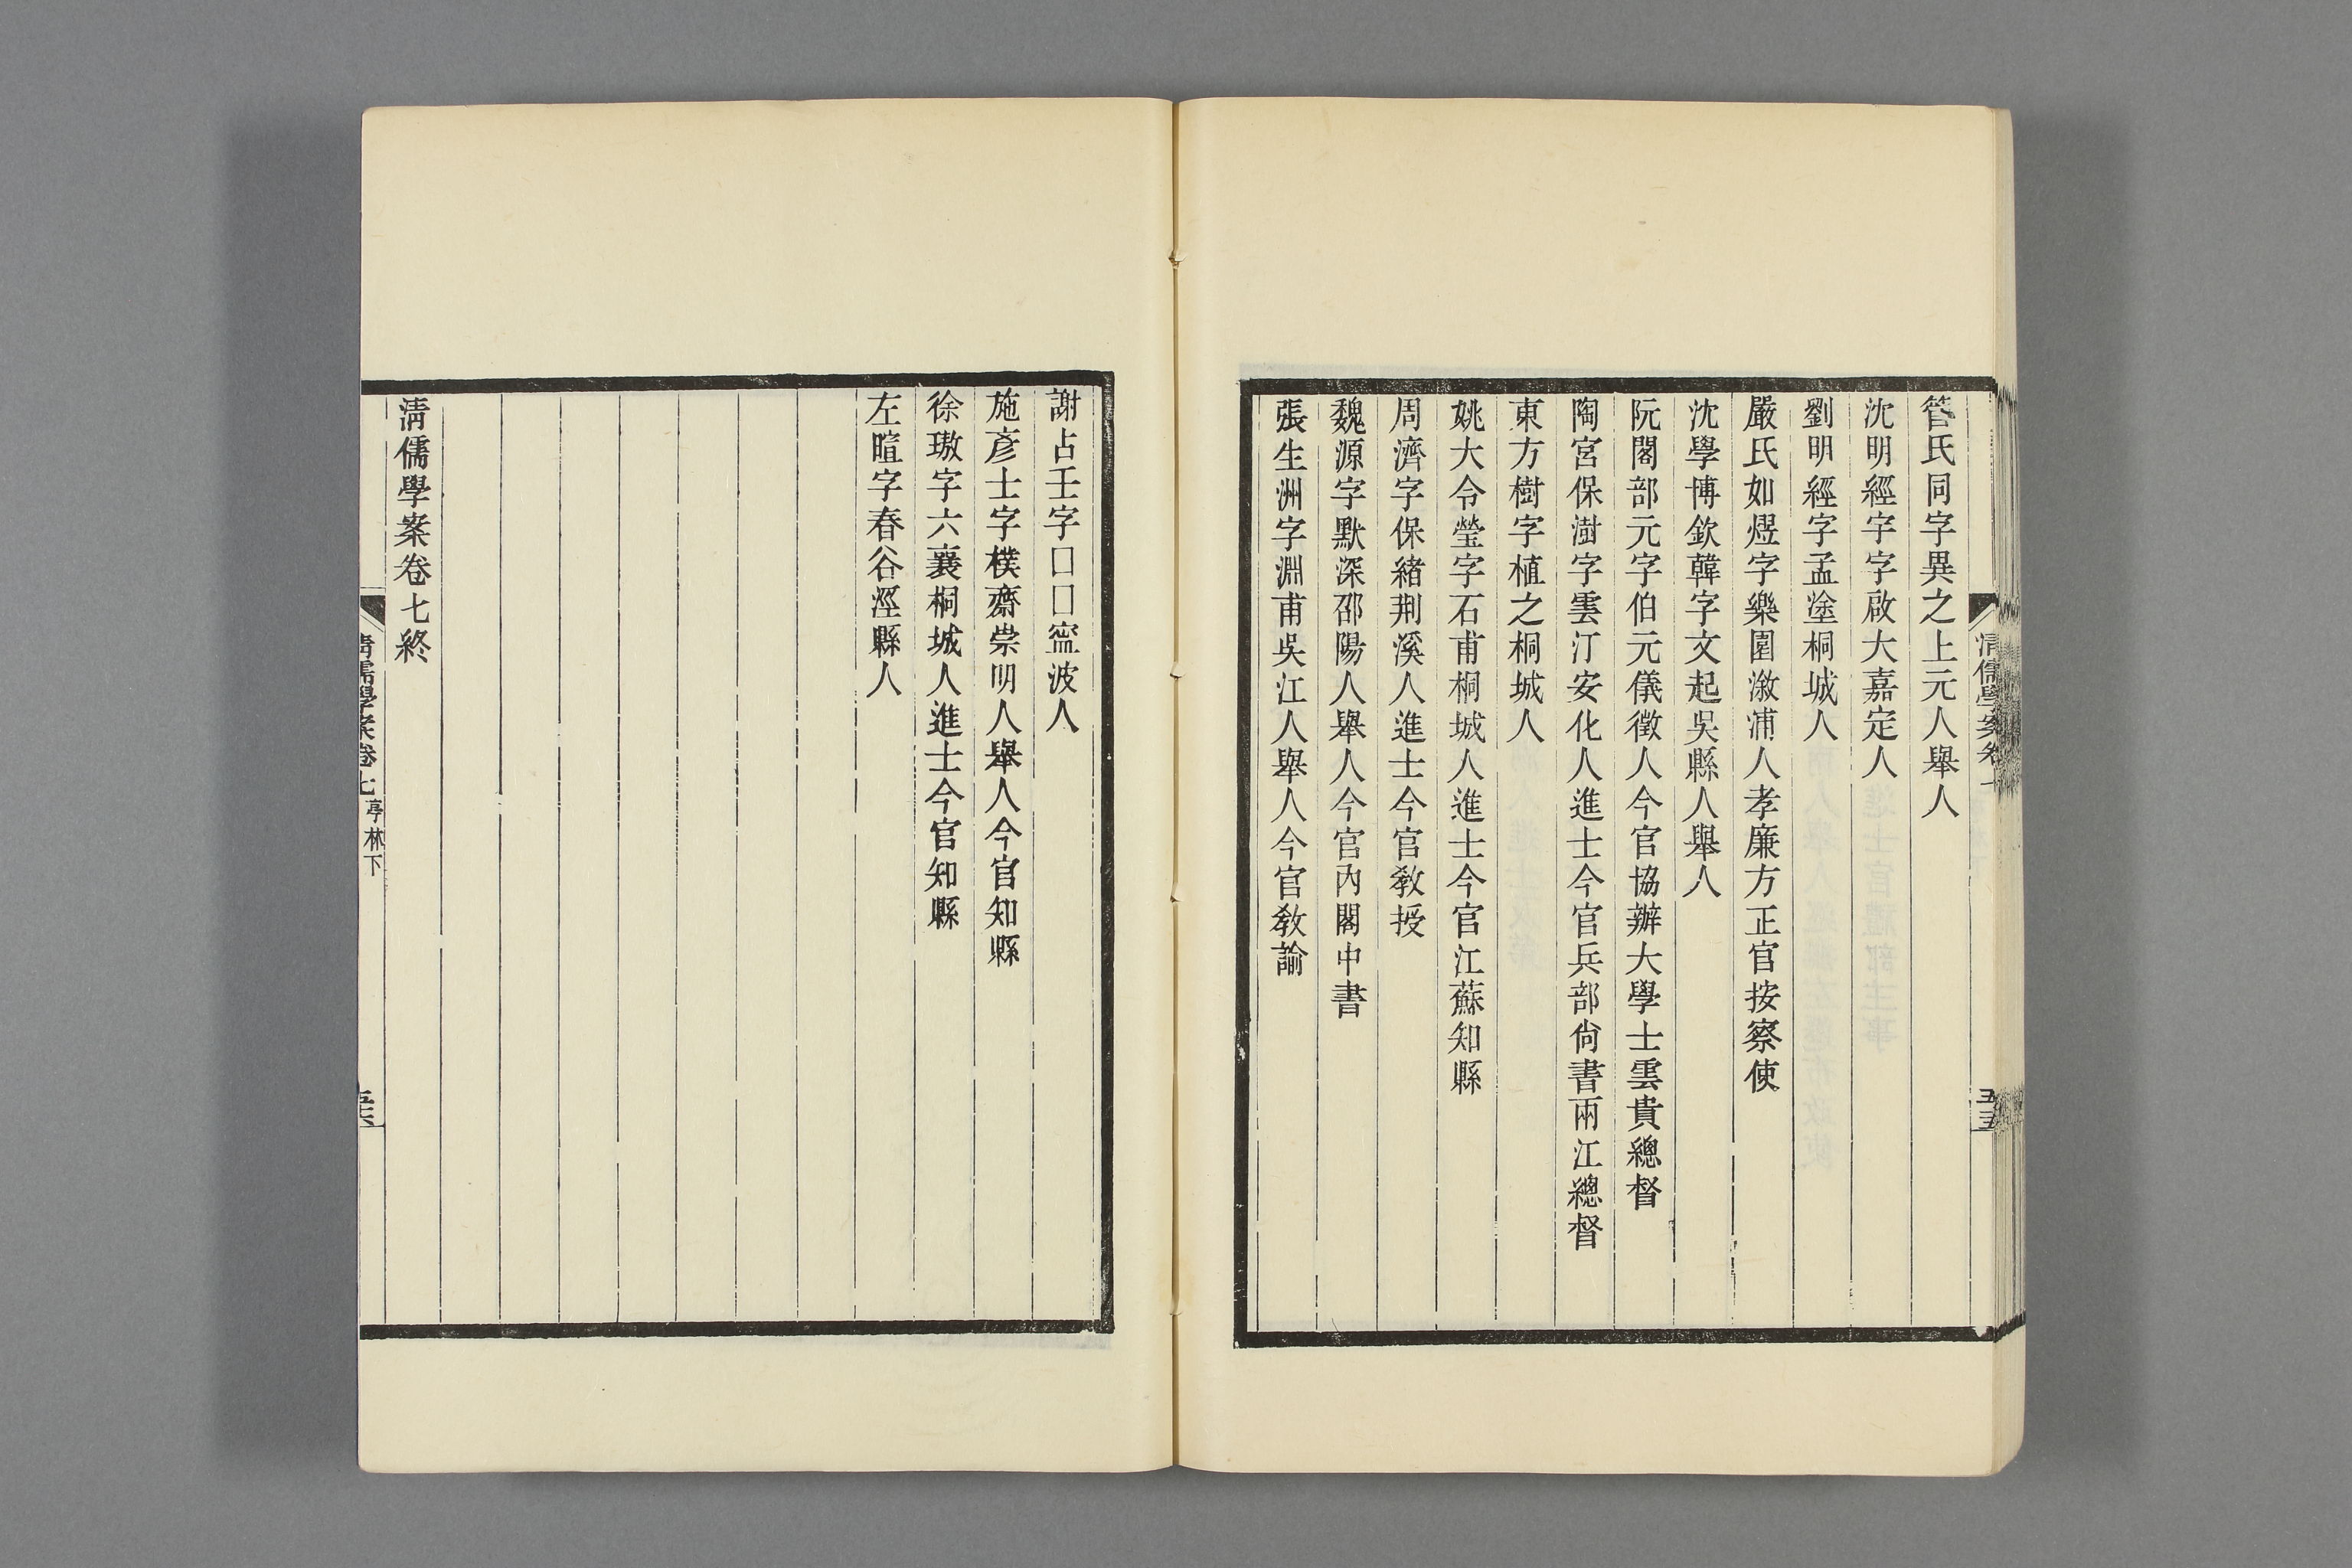 管氏同字異之上元人舉人
沈明經宇字啟大嘉定人
劉明經字孟塗桐城人
嚴氏如熤字樂園漵浦人孝廉方正官按察使
沈學博欽韓字文起吳縣人舉人
阮閣部元字伯元儀徵人今官協辦大學士雲貴總督
陶宮保澍字雲汀安化人進士今官兵部尙書兩江總督
東方樹字植之桐城人
姚大令瑩字石甫桐城人進士今官江蘇知縣
周濟字保緒荆溪人進士今官敎授
魏源字默深邵陽人舉人今官內閣中書
張生洲字淵甫吳江人舉人今官敎諭
清儒學案卷
五五
謝占壬字口口寍波人
施彥士字樸齋崇明人舉人今官知縣
徐璈字六襄桐城人進士今官知縣
左暄字春谷涇縣人
淸儒學案卷七終
清儒學案卷七亭林下
五六